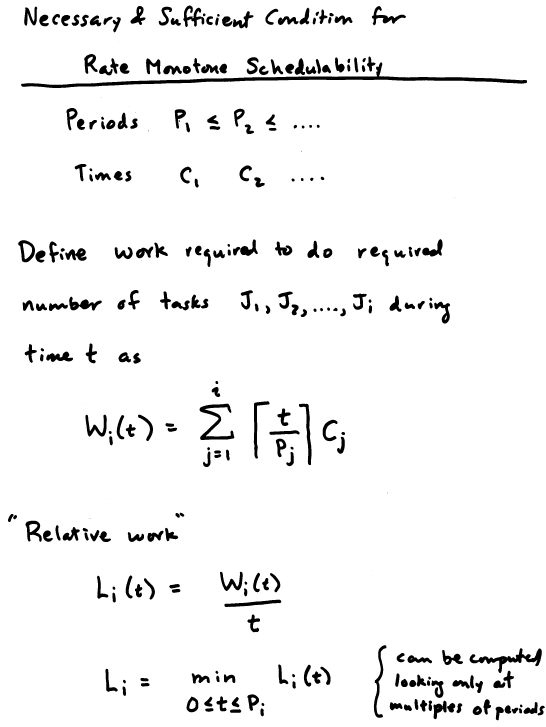 Necessary & Sufficient Condition for
Rate Monotone Schedulability
Periods P₁ ≤ P₂ ≤ ....
Times C₁ C₂ ....
Define work required to do required
number of tasks J₁, J₂, ...., Jᵢ during
time t as
Wᵢ(t) = ∑_{j=1}^{i} ⌈t/Pⱼ⌉ Cⱼ
"Relative work"
Lᵢ(t) = Wᵢ(t)/t
Lᵢ = min_{0≤t≤Pᵢ} Lᵢ(t) { can be computed
looking only at
multiples of periods